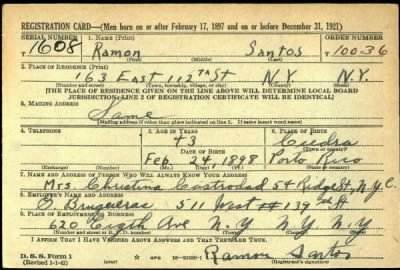 REGISTRATION CARD—(Men born on or after February 17, 1897 and on or before December 31, 1921)
SERIAL NUMBER 1. NAME (Print) ORDER NUMBER
T1608 Ramon Santos 10036
(First) (Middle) (Last)
2. PLACE OF RESIDENCE (Print)
163 East 112th St N.Y. N.Y.
(Number and street) (Town, township, village, or city) (County) (State)
[THE PLACE OF RESIDENCE GIVEN ON THE LINE ABOVE WILL DETERMINE LOCAL BOARD
JURISDICTION; LINE 2 OF REGISTRATION CERTIFICATE WILL BE IDENTICAL]
3. MAILING ADDRESS
Same
[Mailing address if other than place indicated on line 2. If same insert word same]
4. TELEPHONE 5. AGE IN YEARS 6. PLACE OF BIRTH
43
DATE OF BIRTH (Town or county)
Feb. 24, 1898 Porto Rico
(Exchange) (Number) (Mo.) (Day) (Yr.) (State or country)
7. NAME AND ADDRESS OF PERSON WHO WILL ALWAYS KNOW YOUR ADDRESS
Mrs Christina Castrodad 54 Ridge St, N.Y.C.
8. EMPLOYER'S NAME AND ADDRESS
511 West 139 St
9. PLACE OF EMPLOYMENT OR BUSINESS
620 Eigth Ave N.Y. N.Y. N.Y
(Number and street or R. F. D. number) (Town) (County) (State)
I AFFIRM THAT I HAVE VERIFIED ABOVE ANSWERS AND THAT THEY ARE TRUE.
D. S. S. Form 1 Ramon Santos
(Revised 1-1-42) (over) (Registrant's signature)